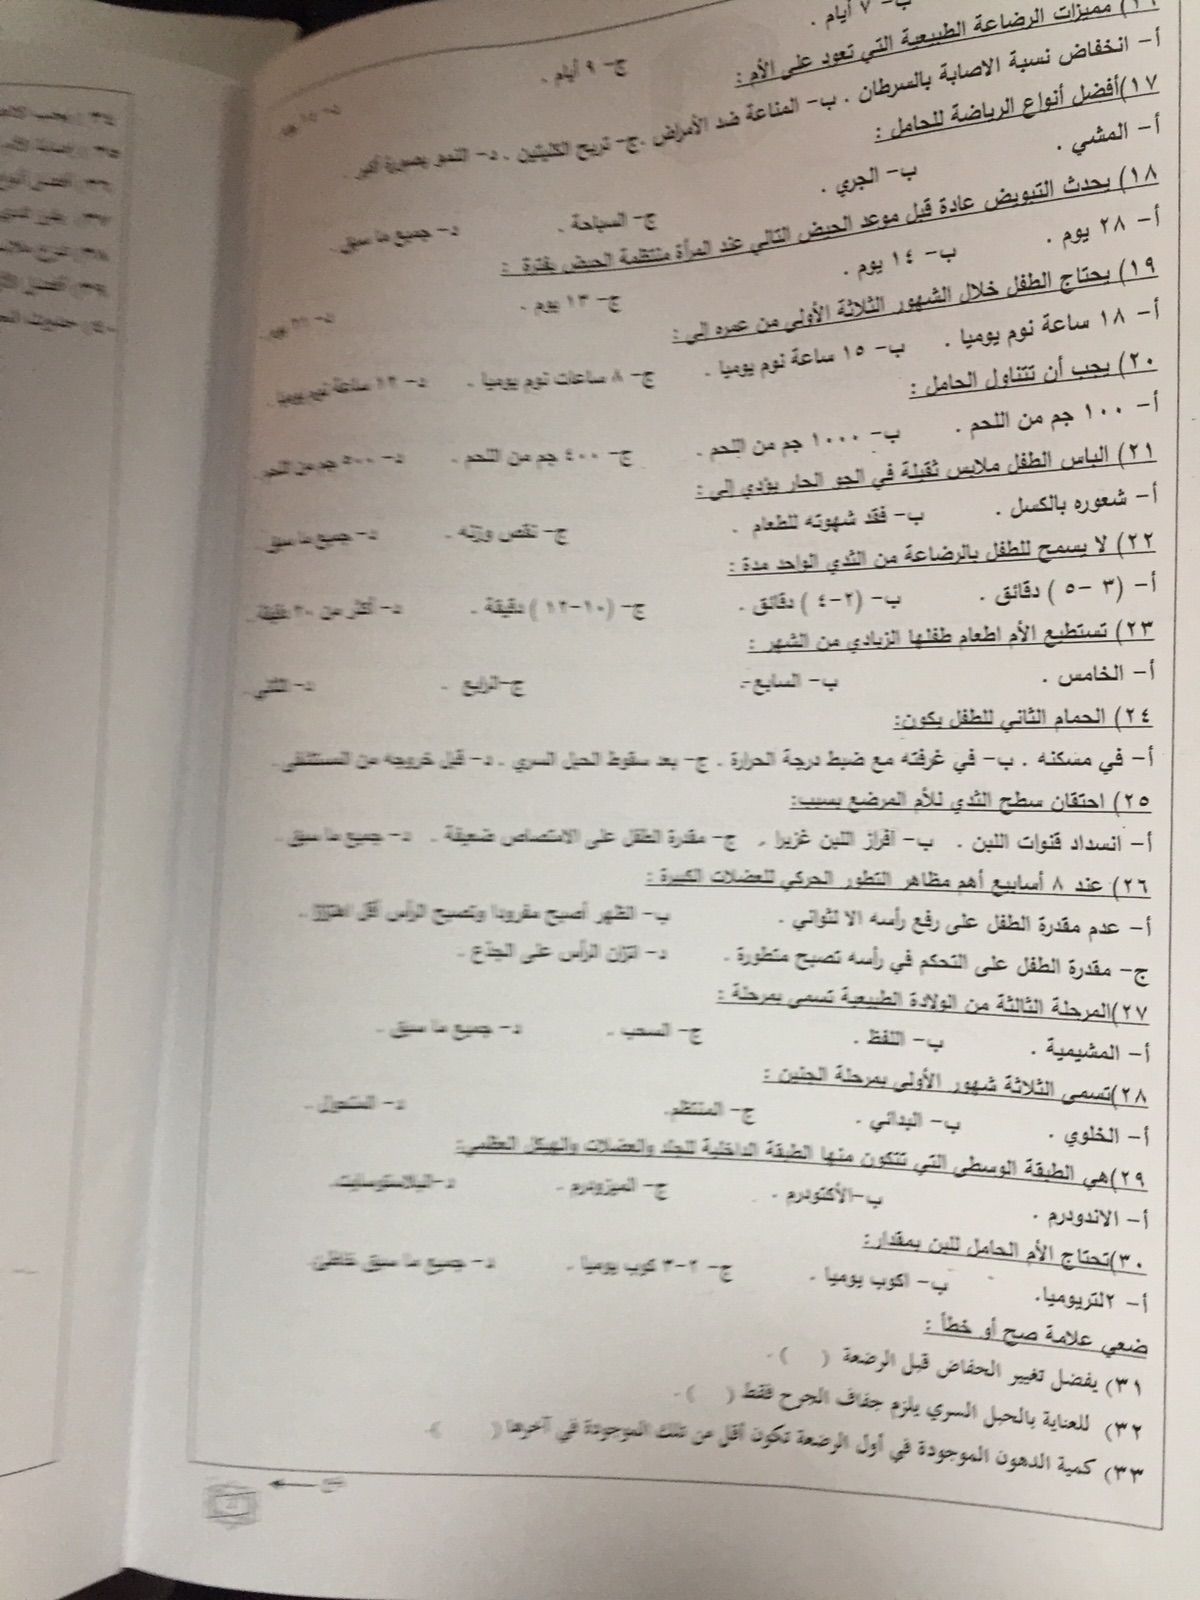 ب- ٧ أيام .
ج- ٩ أيام .
١٦) مميزات الرضاعة الطبيعية التي تعود على الأم :
أ- انخفاض نسبة الاصابة بالسرطان . ب- المناعة ضد الأمراض . ج- تريح الكليتين . د- النمو بصورة أكبر .
١٧) أفضل أنواع الرياضة للحامل :
أ- المشي . ب- الجري . ج- السباحة . د- جميع ما سبق .
١٨) يحدث التبويض عادة قبل موعد الحيض التالي عند المرأة منتظمة الحيض بفترة :
أ- ٢٨ يوم . ب- ١٤ يوم . ج- ١٣ يوم .
١٩) يحتاج الطفل خلال الشهور الثلاثة الأولى من عمره إلى :
أ- ١٨ ساعة نوم يوميا . ب- ١٥ ساعة نوم يوميا . ج- ٨ ساعات نوم يوميا . د- ١٢ ساعة نوم يوميا .
٢٠) يجب أن تتناول الحامل :
أ- ١٠٠ جم من اللحم . ب- ١٠٠٠ جم من اللحم . ج- ٤٠٠ جم من اللحم . د- ٥٠٠ جم من اللحم .
٢١) الباس الطفل ملابس ثقيلة في الجو الحار يؤدي إلى :
أ- شعوره بالكسل . ب- فقد شهوته للطعام . ج- نقص وزنه . د- جميع ما سبق .
٢٢) لا يسمح للطفل بالرضاعة من الثدي الواحد مدة :
أ- (٣ -٥ ) دقائق . ب- (٢-٤ ) دقائق . ج- (١٠-١٢ ) دقيقة . د- أكثر من ٢٠ دقيقة .
٢٣) تستطيع الأم اطعام طفلها الزبادي من الشهر :
أ- الخامس . ب- السابع . ج-الرابع . د- الثاني .
٢٤) الحمام الثاني للطفل يكون:
أ- في مسكنه . ب- في غرفته مع ضبط درجة الحرارة . ج- بعد سقوط الحبل السري . د- قبل خروجه من المستشفى .
٢٥) احتقان سطح الثدي للأم المرضع بسبب:
أ- انسداد قنوات اللبن . ب- افراز اللبن غزيرا . ج- مقدرة الطفل على الامتصاص ضعيفة . د- جميع ما سبق .
٢٦) عند ٨ أسابيع أهم مظاهر التطور الحركي للعضلات الكبيرة :
أ- عدم مقدرة الطفل على رفع رأسه الا لثواني . ب- الظهر أصبح مفرودا وتصبح الرأس أقل اهتزازا .
ج- مقدرة الطفل على التحكم في رأسه تصبح متطورة . د- اتزان الرأس على الجذع .
٢٧)المرحلة الثالثة من الولادة الطبيعية تسمى بمرحلة :
أ- المشيمية . ب- اللفظ . ج- السحب . د- جميع ما سبق .
٢٨)تسمى الثلاثة شهور الأولى بمرحلة الجنين :
أ- الخلوي . ب- البدائي . ج- المنتظم. د- المتحول .
٢٩)هي الطبقة الوسطى التي تتكون منها الطبقة الداخلية للجلد والعضلات والهيكل العظمي:
أ- الاندودرم . ب-الأكتودرم . ج- الميزودرم . د-البلاستوسايت.
٣٠)تحتاج الأم الحامل للبن بمقدار:
أ- ٢لتريوميا. ب- اكوب يوميا . ج- ٢-٣ كوب يوميا . د- جميع ما سبق خاطئ.
ضعي علامة صح أو خطأ :
٣١) يفضل تغيير الحفاض قبل الرضعة ( ).
٣٢) للعناية بالحبل السري يلزم جفاف الجرح فقط ( ).
٣٣) كمية الدهون الموجودة في أول الرضعة تكون أقل من تلك الموجودة في آخرها ( ).